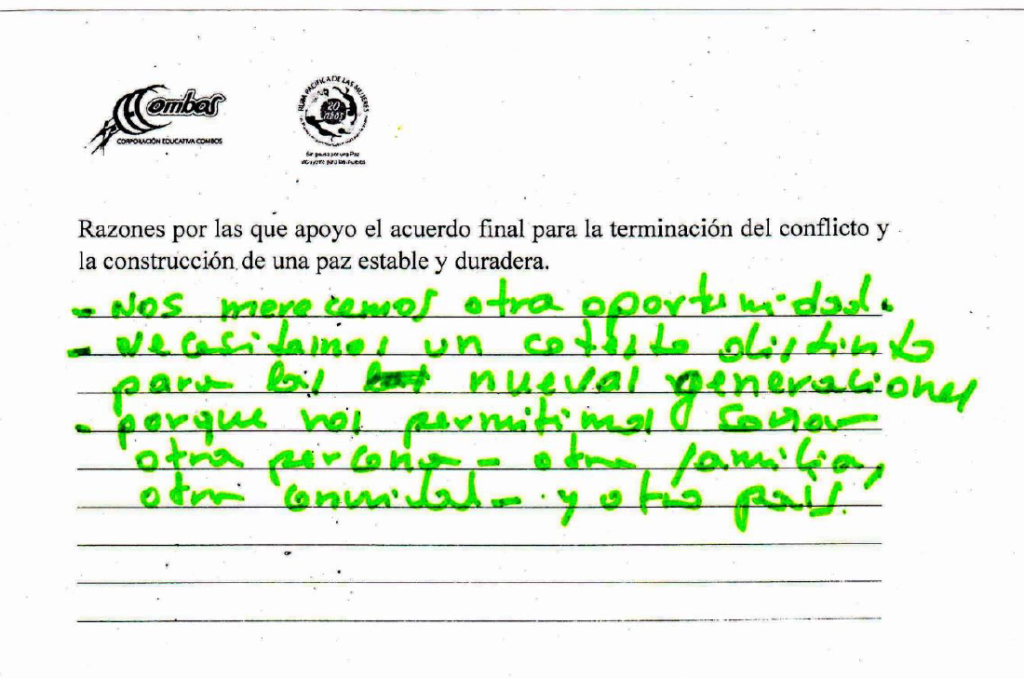 Combos
CORPORACIÓN EDUCATIVA COMBOS
RUTA PACIFICA DE LAS MUJERES
20 años
Razones por las que apoyo el acuerdo final para la terminación del conflicto y
la construcción de una paz estable y duradera.
- Nos merecemos otra oportunidad.
- Necesitamos un distinto
para las nuevas generaciones
- porque nos permitimos sonar
otra percona - otra familia,
otra - y otro país.